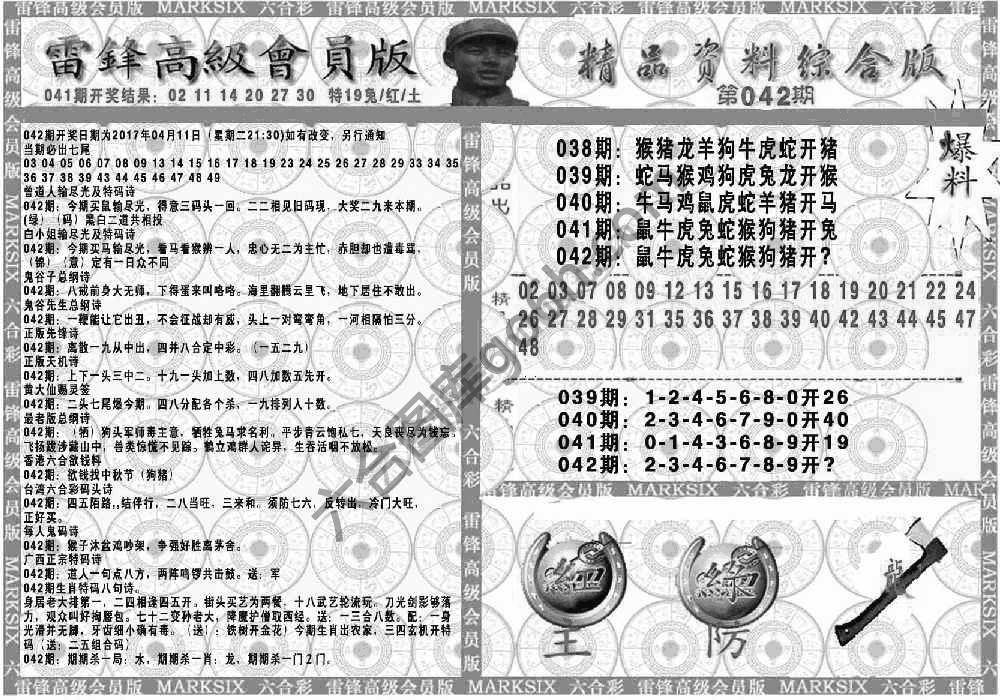 雷锋高级会员版 MARKSIX 六合彩 雷锋高级会员版 MARKSIX 六合彩 雷锋高级会员版
雷鋒高級會員版
精品资料综合版
041期开奖结果：02 11 14 20 27 30 特19兔/红/土
第042期
042期开奖日期为2017年04月11日（星期二21:30)如有改变，另行通知
当期必出七尾
03 04 05 06 07 08 09 13 14 15 16 17 18 19 23 24 25 26 27 28 29 33 34 35
36 37 38 39 43 44 45 46 47 48 49
曾道人输尽光及特码诗
042期：今期买鼠输尽光，得意三码头一回。二二相见旧码现，大奖二九来本期。
(绿）（码）黑白二道共相投
白小姐输尽光及特码诗
042期：今期买马输尽光，看马看猴辨一人，忠心无二为主忙，赤胆却也遭毒骂，
（锦）（意）定有一日众不同
鬼谷子总纲诗
042期：八戒前身大无师，下得蛋来叫咯咯。海里翻腾云里飞，地下居住不敢出。
鬼谷先生总纲诗
042期：一鞭能让它出丑，不会征战却有威，头上一对弯弯角，一河相隔怕三分。
正版先锋诗
042期：离散一九从中出，四并八合定中彩。（一五二九）
正版天机诗
042期：上下一头三中二。十九一头加上数，四八加数五先开。
黄大仙赐灵签
042期：二头七尾爆今期。四八分配各个杀，一九排列人十数。
最老版总纲诗
042期：（牺）狗头军师乘主意，牺牲兔马求名利。平步青云饱私七，天良丧尽为被忘。
飞扬跋涉藏山中，兽类惊慌不见踪。鹤立鸡群人诧异，生吞活咽不放松。
香港六合欲钱料
042期：欲钱找中秋节（狗猪）
台湾六合彩码头诗
042期：四五陌路,,结伴行，二八当旺，三来和。须防七六，反转出，冷门大旺，
正好买。
每人鬼码诗
042期：猴子沐盆鸡吵架，争强好胜离茅舍。
广西正宗特码诗
042期：道人一句点八方，两阵鸣锣共击鼓。送：军
042期生肖特码八句诗。
身居老大排第一，二四相逢四五开。街头买艺为两餐，十八武艺轮流玩。刀光剑影够落
力，观众叫好掏腰包。七十二变孙老大，降魔护僧取西经。送：一三合八数。配：一身
光滑并无脚，牙齿细小确有毒。（送）：铁树开金花）今期生肖出农家，三四玄机开特
码（送：二五组合码）
042期：期期杀一局：水，期期杀一肖：龙，期期杀一门2门。
038期：猴猪龙羊狗牛虎蛇开猪
039期：蛇马猴鸡狗虎兔龙开猴
040期：牛马鸡鼠虎蛇羊猪开马
041期：鼠牛虎兔蛇猴狗猪开兔
042期：鼠牛虎兔蛇猴狗猪开?
爆料
品
出
精
02 03 07 08 09 12 13 15 16 17 18 19 20 21 22 24
26 27 28 29 31 35 36 37 38 39 40 42 43 44 45 47
48
精
039期：1-2-4-5-6-8-0开26
040期：2-3-4-6-7-9-0开40
041期：0-1-4-3-6-8-9开19
042期：2-3-4-6-7-8-9开?
雷锋高级会员版 MARKSIX 六合彩 雷锋高级会员版
主
防
龍
雷锋高级会员版 MARKSIX 六合彩 雷锋高级会员版 MARKSIX 六合彩 雷锋高级会员版